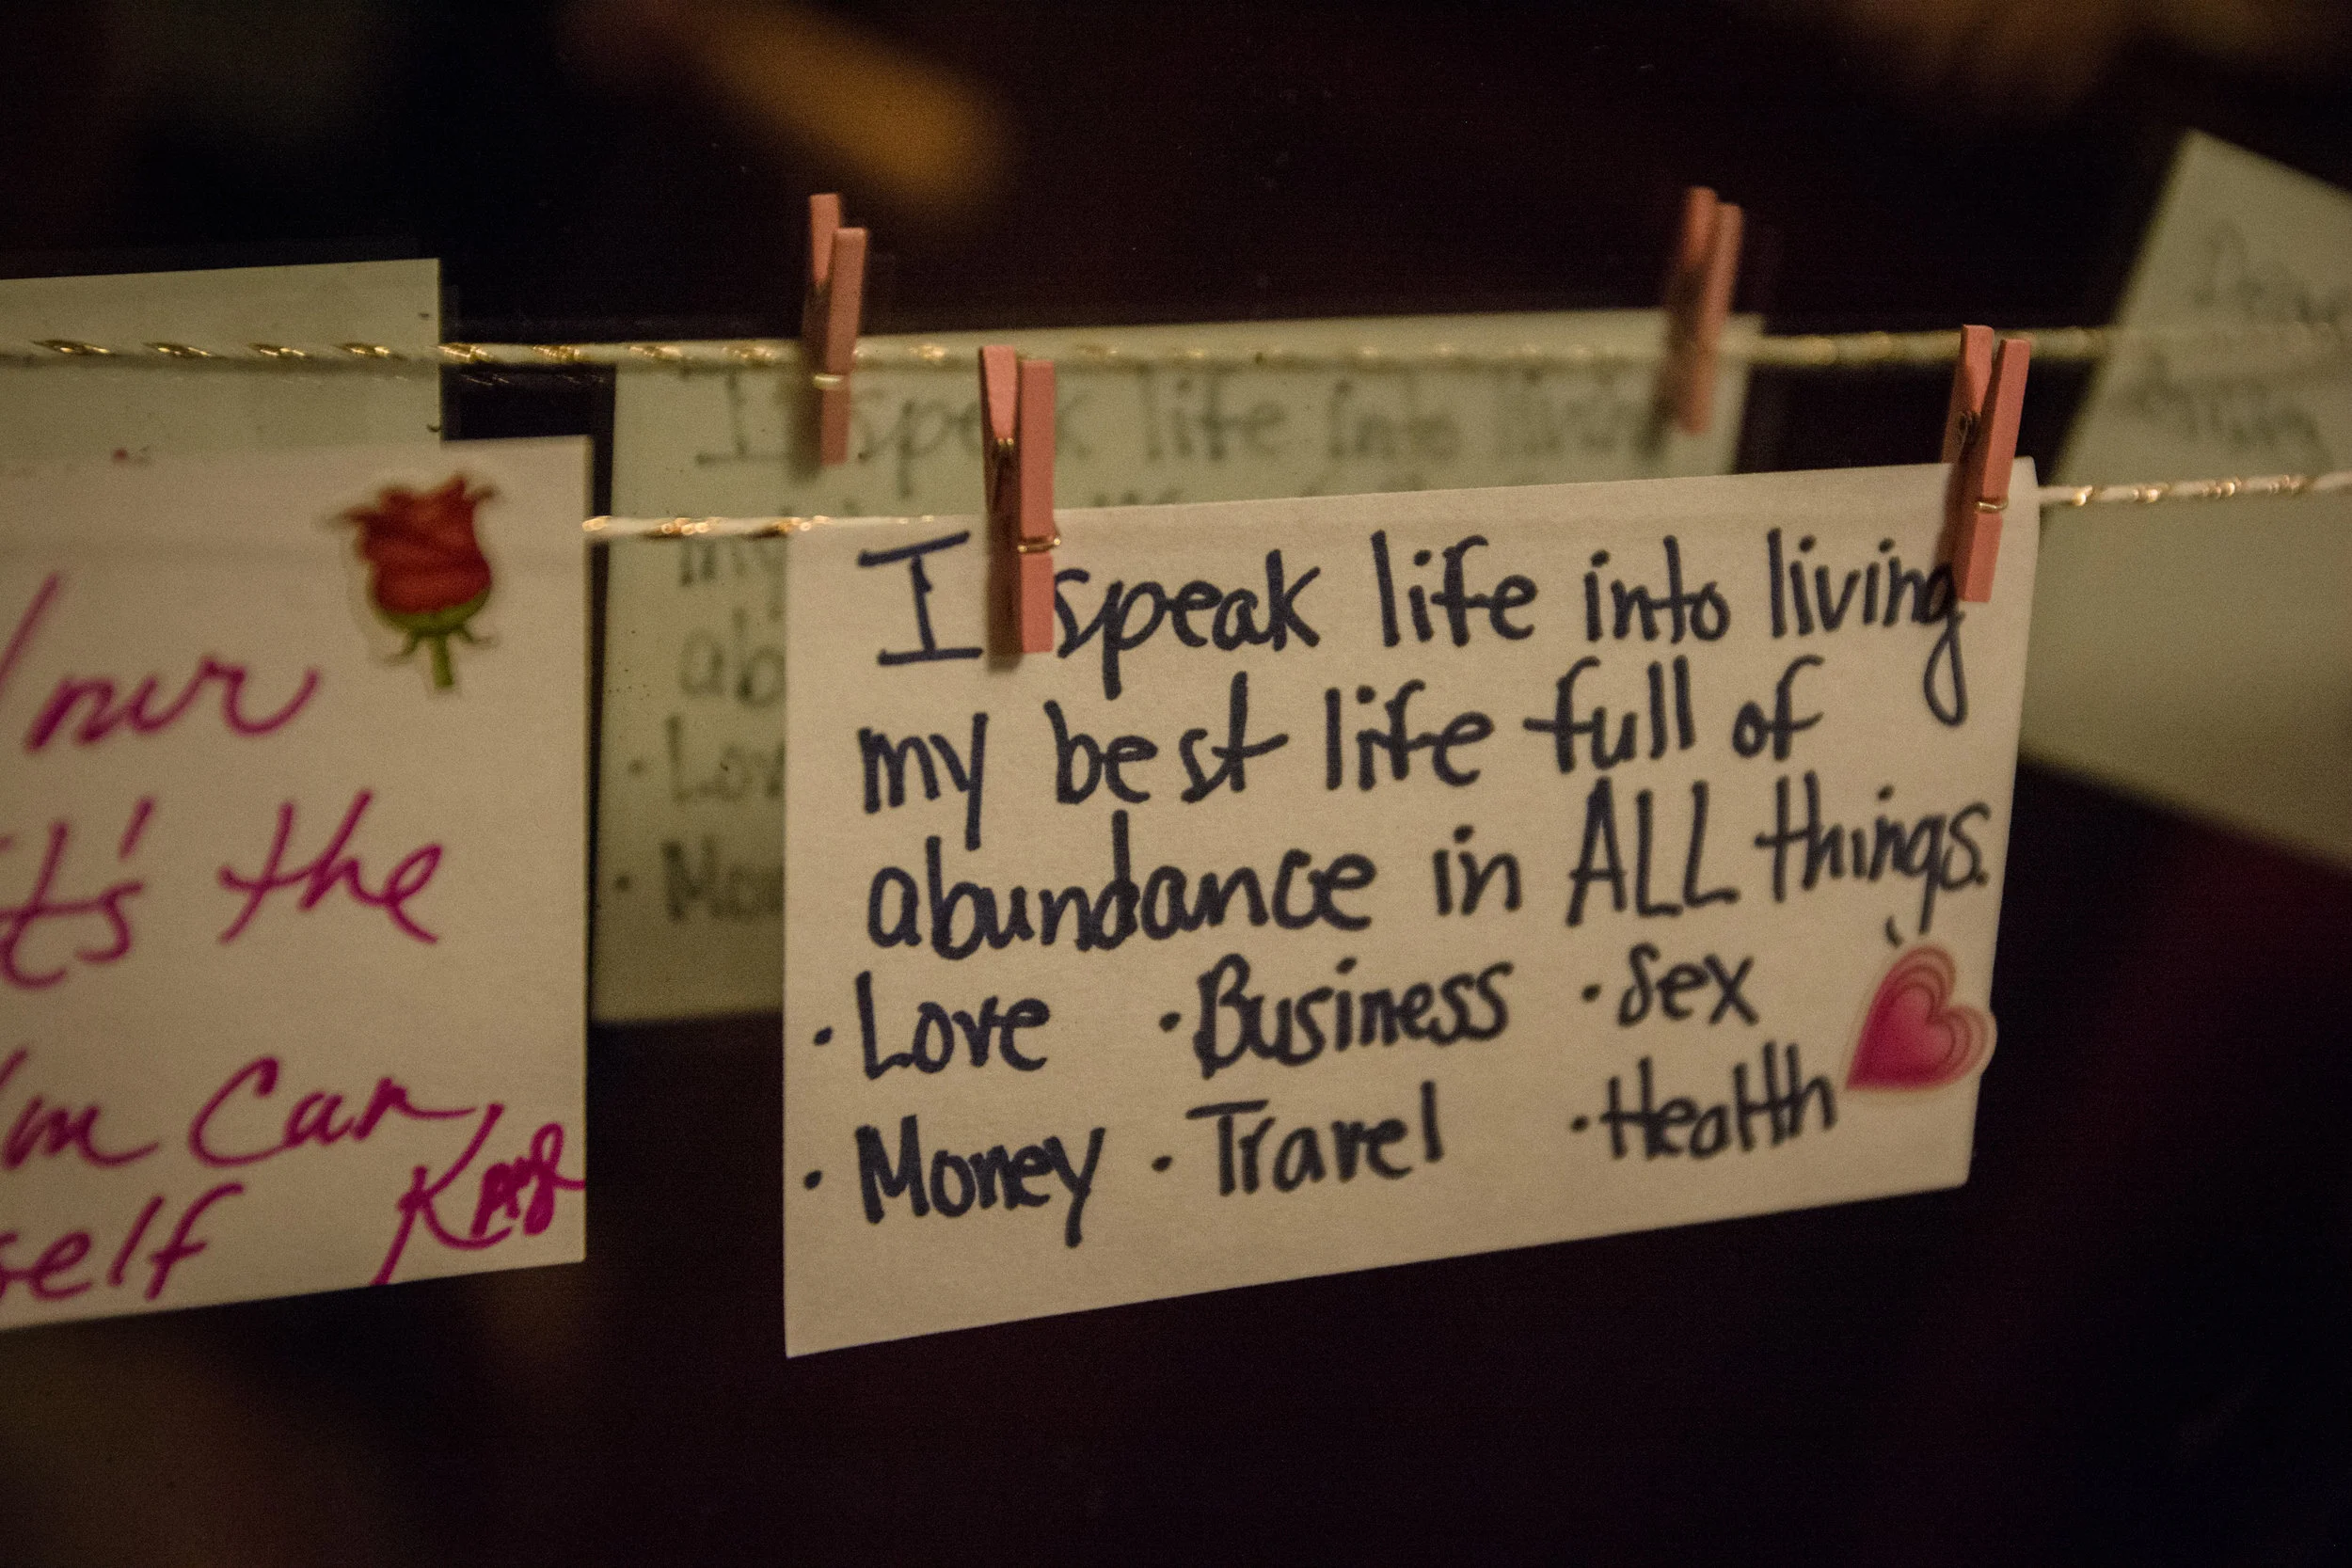 I speak life into living
my best life full of
abundance in ALL things.
· Love · Business · Sex
· Money · Travel · Health
t's the
can
self
I speak life into living
my
ab